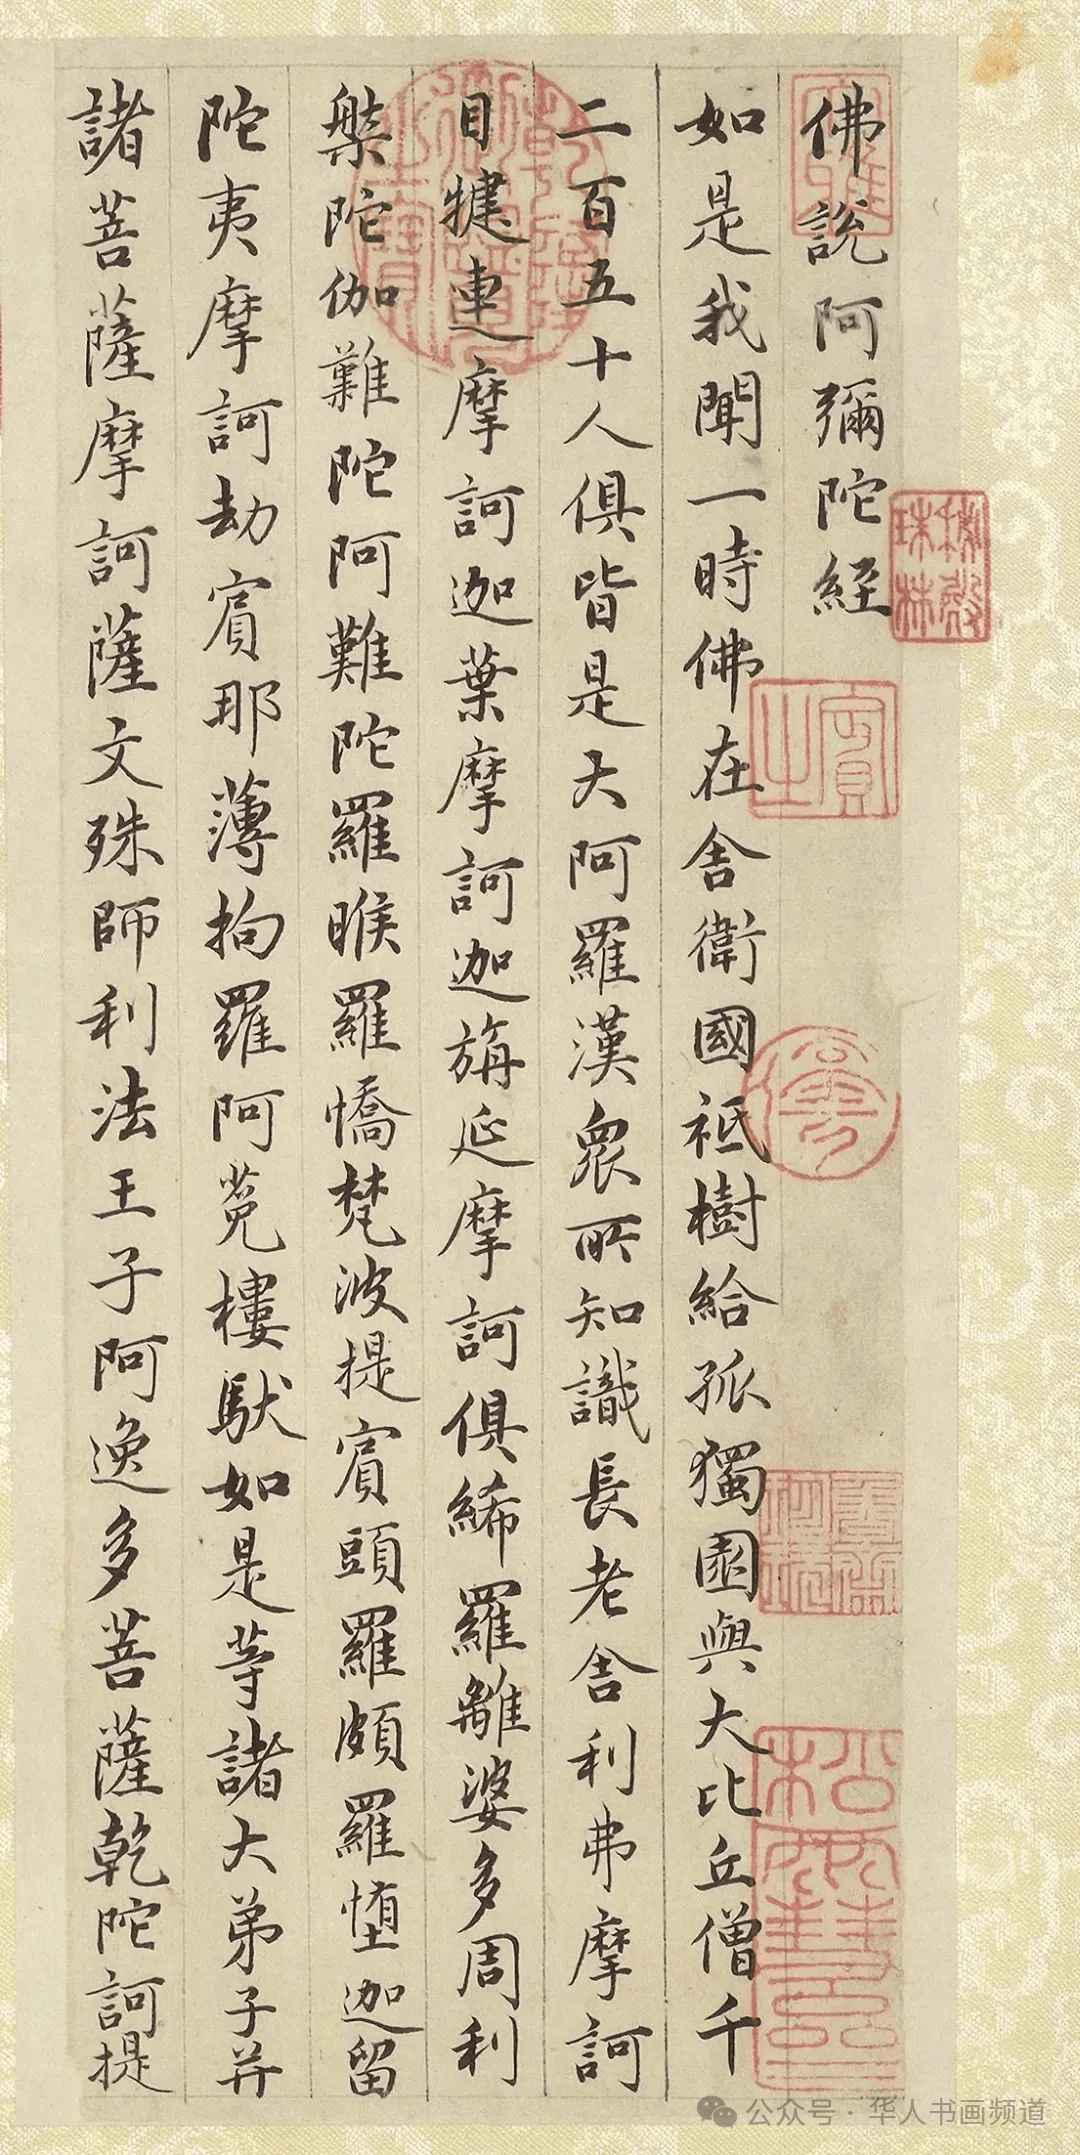 佛說阿彌陀經
如是我聞一時佛在舍衛國祇樹給孤獨園與大比丘僧千
二百五十人俱皆是大阿羅漢衆所知識長老舍利弗摩訶
目犍連摩訶迦葉摩訶迦旃延摩訶俱絺羅離婆多周利
槃陀伽難陀阿難陀羅睺羅憍梵波提賓頭羅頗羅墮迦留
陀夷摩訶劫賓那薄拘羅阿㝹樓馱如是等諸大弟子并
諸菩薩摩訶薩文殊師利法王子阿逸多菩薩乾陀訶提
秘殿珠林
公众号·华人书画频道